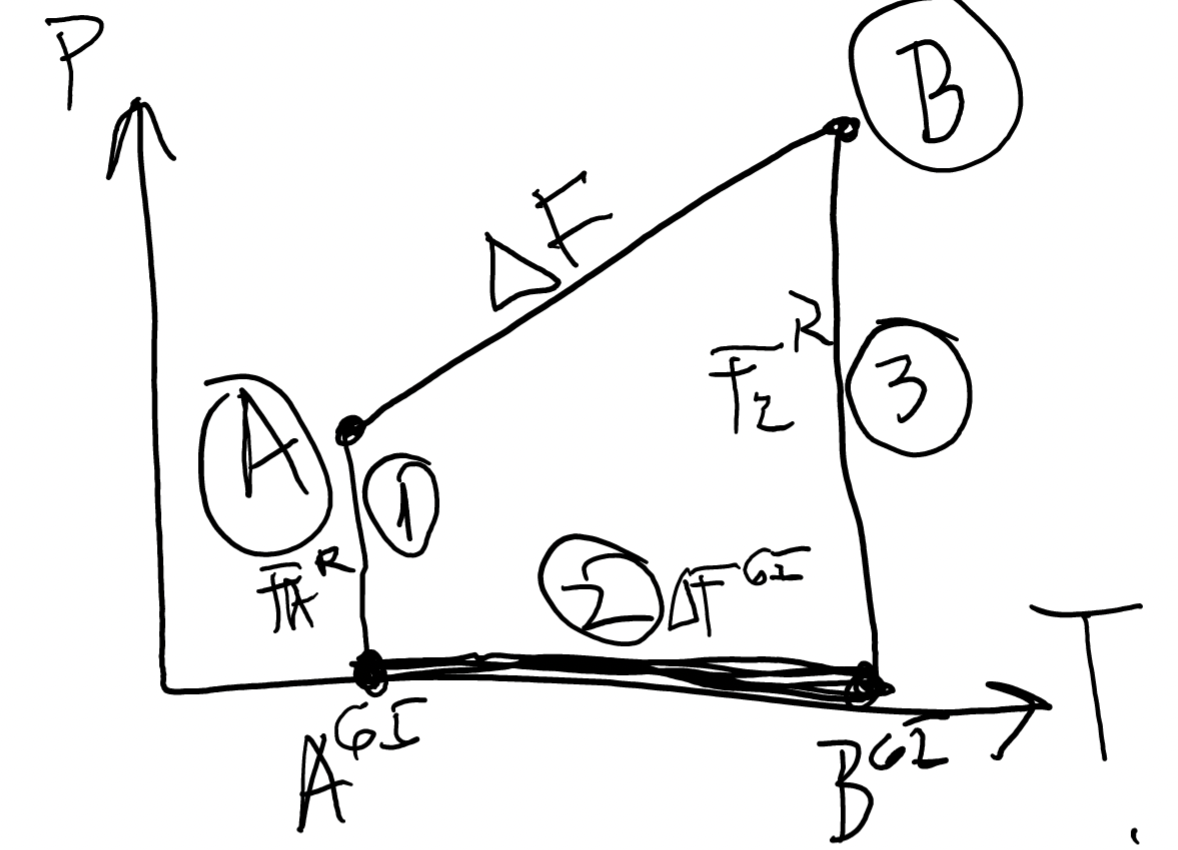 P
B
ΔF
F₂ᴿ
3
A
1
2 ΔF^GI
A^GI
B^GI
T